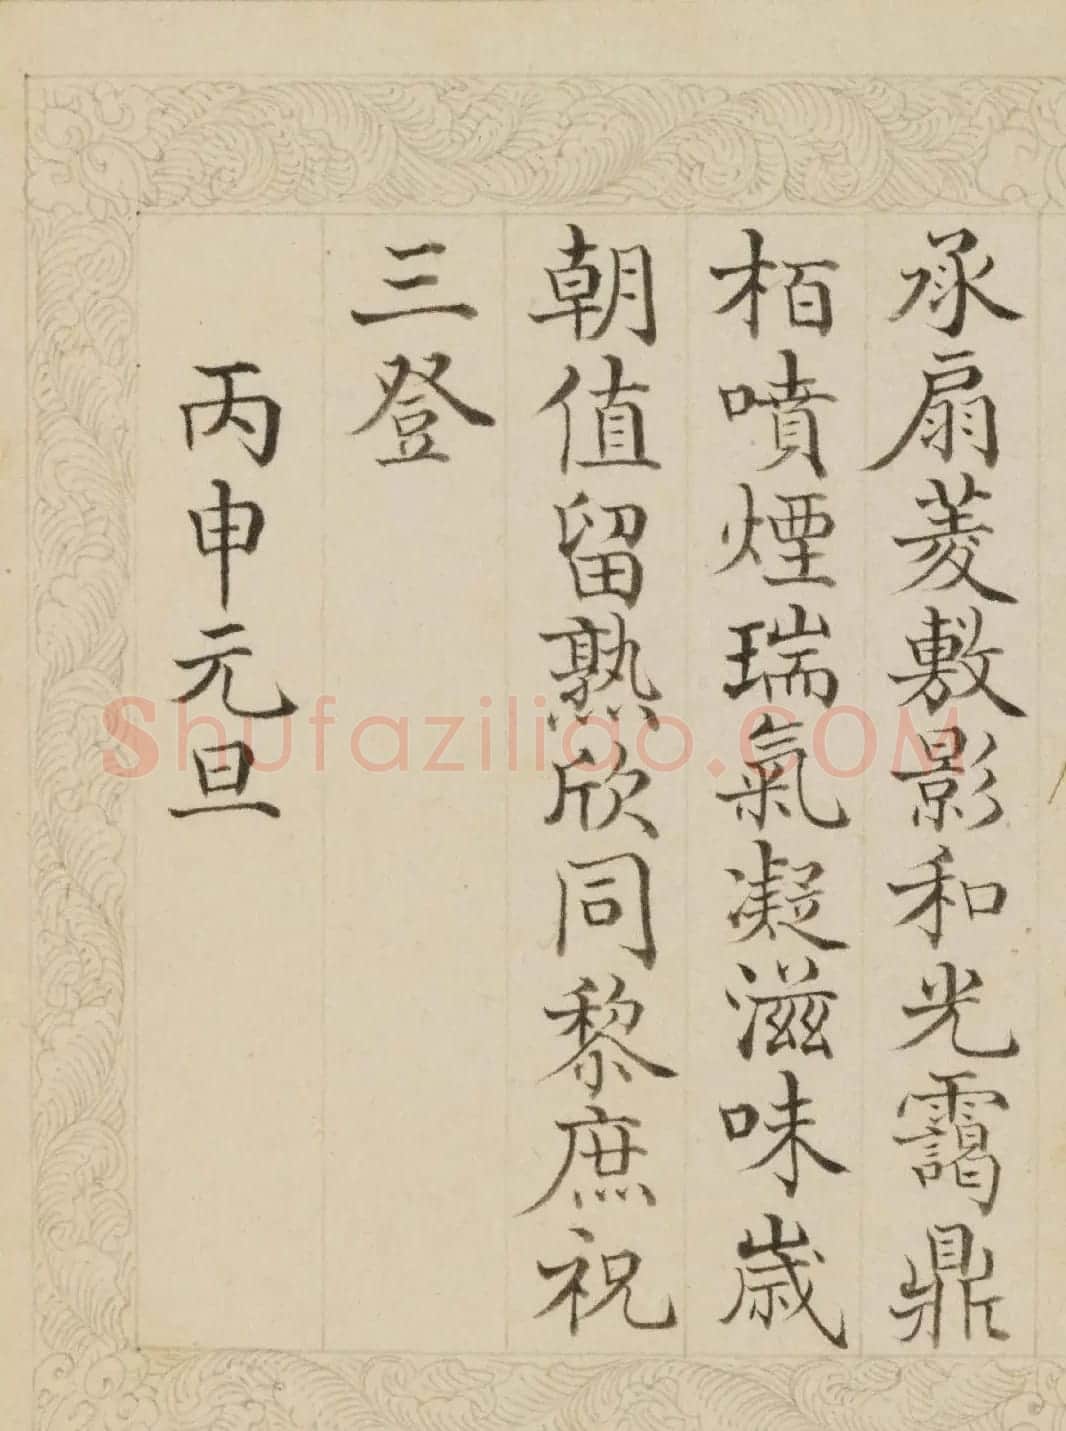 承扇菱敷影和光靄鼎
栢噴煙瑞氣凝滋味歲
朝值留熟欣同黎庶祝
三登
丙申元旦
Shufaziliao.COM